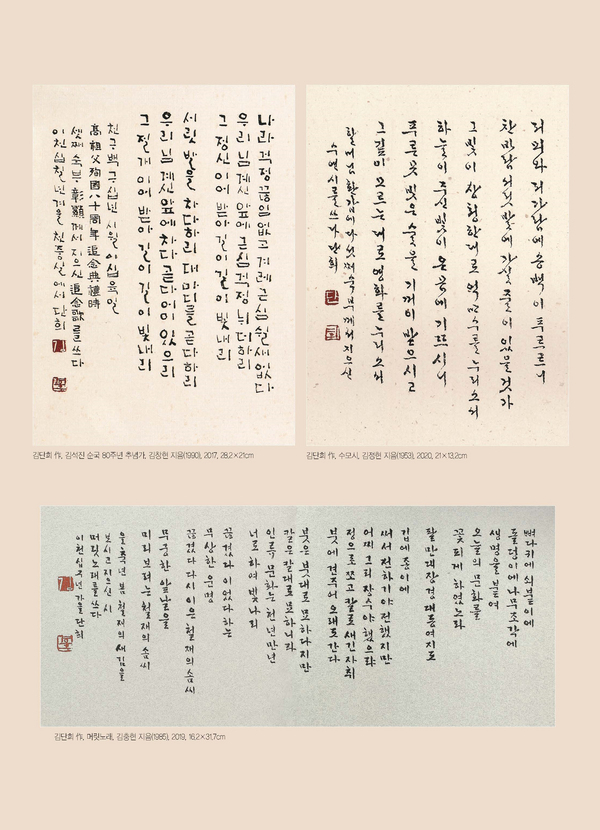 나라 걱정 끊일 없고 겨레 근심 쉴 새 없다
우리 님 계신 앞에 근심 걱정 뉘 더하리
그 정신 이어 받아 길이 길이 빛내리
서릿발을 차다하리 대마디를 곧다하리
우리 님 계신 앞에 차다 곧다 어이 있으리
그 절개 이어 받아 길이 길이 빛내리
천구백구십년 시월 이십육일
高祖父殉國八十周年追念典禮時
셋째 숙부 彰顯께서 지으신 追念歌를 쓰다
이천십칠년 겨울 천중실에서 단희
송백이 푸르르니
찬바람 서릿발에 가실 줄이 있을것가
그 빛이 창창한대로 억만수를 누리소서
하늘이 주신 빛이 온 곳에 기쁘시니
푸른 빛은 술을 기꺼이 받으시고
그 깊이 모르는대로 영화를 누리소서
할머님 환갑에 다섯째 숙부께서 지으신
수연시를 쓰다 단희
김단희 作, 김석진 순국 80주년 추념가, 김창현 지음(1990), 2017, 28.2×21cm
김단희 作, 수모시, 김정현 지음(1953), 2020, 21×13.2cm
뼈다귀에 쇠붙이에
돌덩이에 나무조각에
생명을 부여
오늘의 문화를
꽃피게 하였노라
팔만대장경 대동여지도
깁에 종이에
써서 전하기야 전했지만
어찌 그리 장수야 했으랴
정으로 쪼고 칼로 새긴 자취
붓에 견주어 오래도 간다
붓은 붓대로 모하다지만
칼은 칼대로 모하니라
인류 문화는 천년만년
너로 하여 빛나리
끊겼다 이었다 하는
무상한 운명
끊겼다 다시 이은 철재의 솜씨
무궁한 앞날을
미리 보려는 철재의 솜씨
을축년 봄 철재의 새김을
보시고 지으신 시
머릿노래를 쓰다
이천십구년 가을 단희
김단희 作, 머릿노래, 김충현 지음(1985), 2019, 16.2×31.7cm